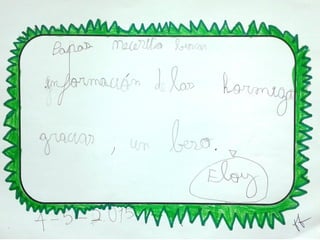 Papás necesito buscar
información de las hormigas
gracias, un beso.
Eloy
4-5-2015